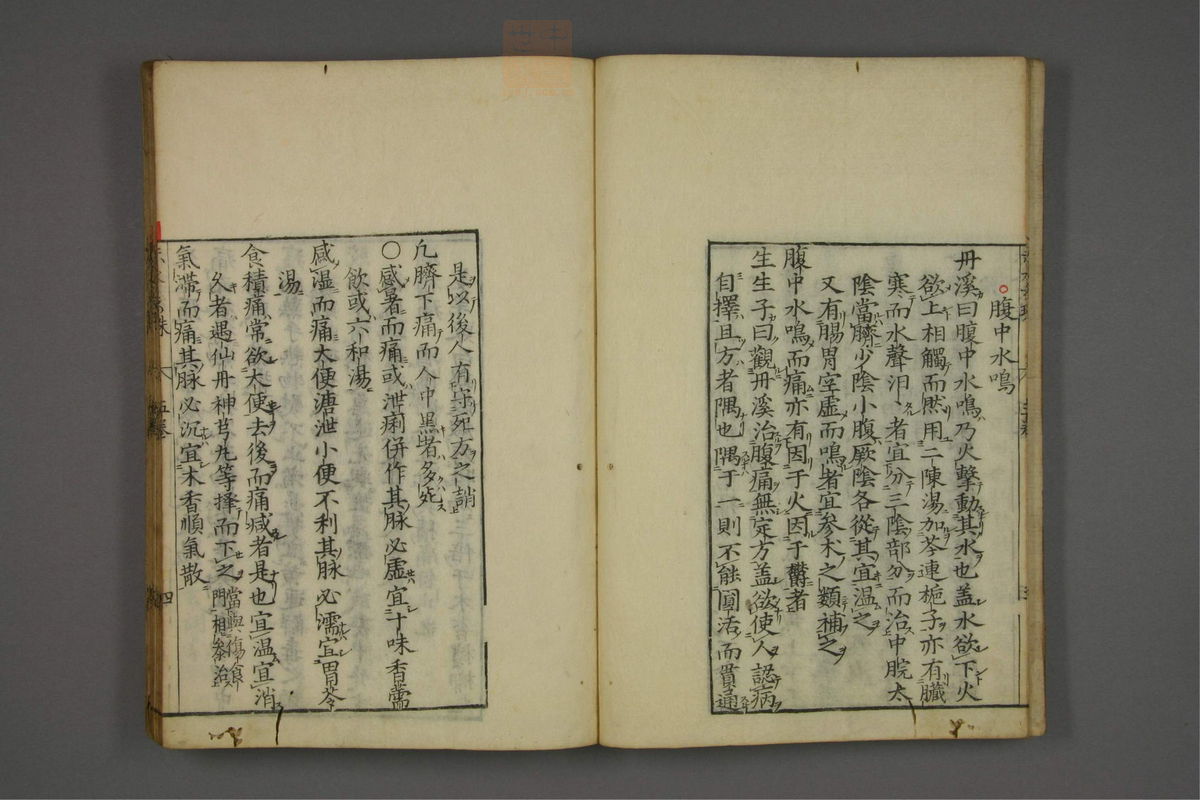 腹中水鳴
丹溪曰腹中水鳴乃火擊動其水也蓋水欲下火
欲上相觸而然用二陳湯加芩連梔子亦有臟
寒而水聲汨、者宜分三陰部分而治中脘太
陰當臍少陰小腹厥陰各從其宜温之
又有腸胃空虛而鳴者宜參朮之類補之
腹中水鳴而痛亦有因于火因于欝者
生生子曰觀丹溪治腹痛無定方蓋欲使人認病
自擇且方者隅也隅于一則不能圓活而貫通
是以後人有守死方之誚
凢臍下痛而人中黑者多死
○感暑而痛或泄痢併作其脉必虛宜十味香薷
飲或六和湯
感湿而痛大便溏泄小便不利其脉必濡宜胃苓
湯
食積痛常欲大便去後而痛减者是也宜温宜消
久者遇仙丹神芎丸等擇而下之當與傷食門相參治
氣滯而痛其脉必沉宜木香順氣散
五卷
四